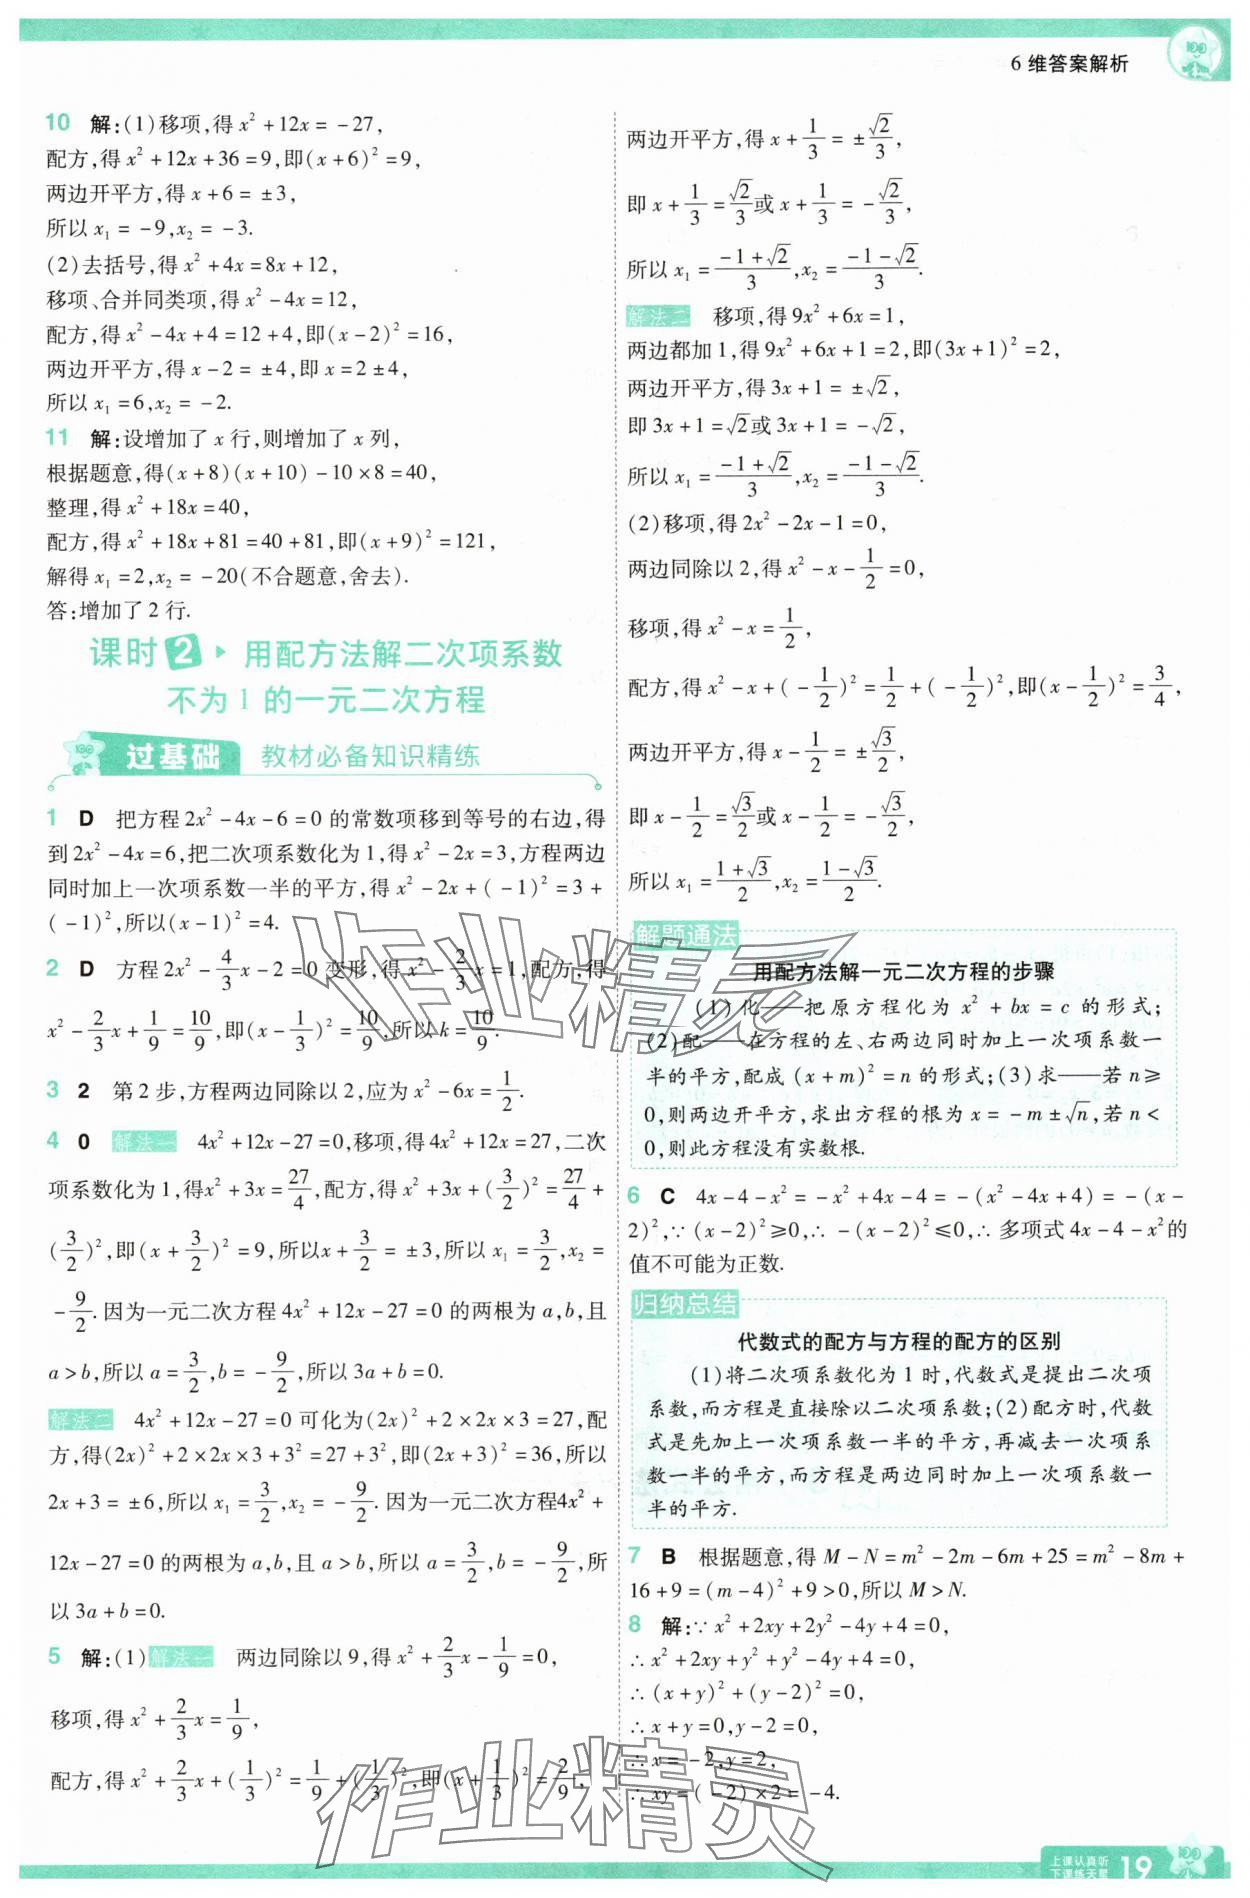 6 维答案解析
10 解:(1)移项,得 x²+12x=-27,
配方,得 x²+12x+36=9,即(x+6)²=9,
两边开平方,得 x+6=±3,
所以 x₁=-9,x₂=-3.
(2)去括号,得 x²+4x=8x+12,
移项、合并同类项,得 x²-4x=12,
配方,得 x²-4x+4=12+4,即(x-2)²=16,
两边开平方,得 x-2=±4,即 x=2±4,
所以 x₁=6,x₂=-2.
11 解:设增加了 x 行,则增加了 x 列,
根据题意,得(x+8)(x+10)-10×8=40,
整理,得 x²+18x=40,
配方,得 x²+18x+81=40+81,即(x+9)²=121,
解得 x₁=2,x₂=-20(不合题意,舍去).
答:增加了 2 行.
课时2 用配方法解二次项系数
不为 1 的一元二次方程
过基础 教材必备知识精练
1 D 把方程 2x²-4x-6=0 的常数项移到等号的右边,得
到 2x²-4x=6,把二次项系数化为 1,得 x²-2x=3,方程两边
同时加上一次项系数一半的平方,得 x²-2x+(-1)²=3+
(-1)²,所以(x-1)²=4.
2 D 方程 2x²-4/3x-2=0 变形,得 x²-2/3x=1,配方,得
x²-2/3x+1/9=10/9,即(x-1/3)²=10/9,所以 k=10/9.
3 2 第 2 步,方程两边同除以 2,应为 x²-6x=1/2.
4 0 解法一 4x²+12x-27=0,移项,得 4x²+12x=27,二次
项系数化为 1,得x²+3x=27/4,配方,得 x²+3x+(3/2)²=27/4+
(3/2)²,即(x+3/2)²=9,所以x+3/2=±3,所以 x₁=3/2,x₂=
-9/2.因为一元二次方程 4x²+12x-27=0 的两根为 a,b,且
a>b,所以 a=3/2,b=-9/2,所以 3a+b=0.
解法二 4x²+12x-27=0 可化为(2x)²+2×2x×3=27,配
方,得(2x)²+2×2x×3+3²=27+3²,即(2x+3)²=36,所以
2x+3=±6,所以 x₁=3/2,x₂=-9/2.因为一元二次方程4x²+
12x-27=0 的两根为 a,b,且 a>b,所以 a=3/2,b=-9/2,所
以 3a+b=0.
5 解:(1)解法一 两边同除以 9,得 x²+2/3x-1/9=0,
移项,得 x²+2/3x=1/9,
配方,得 x²+2/3x+(1/3)²=1/9+(1/3)²,即(x+1/3)²=2/9,
两边开平方,得 x+1/3=±√2/3,
即 x+1/3=√2/3或 x+1/3=-√2/3,
所以 x₁=(-1+√2)/3,x₂=(-1-√2)/3.
解法二 移项,得 9x²+6x=1,
两边都加 1,得 9x²+6x+1=2,即(3x+1)²=2,
两边开平方,得 3x+1=±√2,
即 3x+1=√2或 3x+1=-√2,
所以 x₁=(-1+√2)/3,x₂=(-1-√2)/3.
(2)移项,得 2x²-2x-1=0,
两边同除以 2,得 x²-x-1/2=0,
移项,得 x²-x=1/2,
配方,得 x²-x+(-1/2)²=1/2+(-1/2)²,即(x-1/2)²=3/4,
两边开平方,得 x-1/2=±√3/2,
即 x-1/2=√3/2或 x-1/2=-√3/2,
所以 x₁=(1+√3)/2,x₂=(1-√3)/2.
解题通法
用配方法解一元二次方程的步骤
(1)化——把原方程化为 x²+bx=c 的形式;
(2)配——在方程的左、右两边同时加上一次项系数一
半的平方,配成 (x+m)²=n 的形式;(3)求——若 n≥
0,则两边开平方,求出方程的根为 x=-m±√n,若 n<
0,则此方程没有实数根.
6 C 4x-4-x²=-x²+4x-4=-(x²-4x+4)=-(x-
2)²,∵(x-2)²≥0,∴-(x-2)²≤0,∴多项式 4x-4-x²的
值不可能为正数.
归纳总结
代数式的配方与方程的配方的区别
(1)将二次项系数化为 1 时,代数式是提出二次项
系数,而方程是直接除以二次项系数;(2)配方时,代数
式是先加上一次项系数一半的平方,再减去一次项系
数一半的平方,而方程是两边同时加上一次项系数一
半的平方.
7 B 根据题意,得 M-N=m²-2m-6m+25=m²-8m+
16+9=(m-4)²+9>0,所以 M>N.
8 解:∵x²+2xy+2y²-4y+4=0,
∴x²+2xy+y²+y²-4y+4=0,
∴(x+y)²+(y-2)²=0,
∴x+y=0,y-2=0,
∴x=-2,y=2,
∴xy=(-2)×2=-4.
作业精灵
作业精灵
上课认真听
下课练天星
19